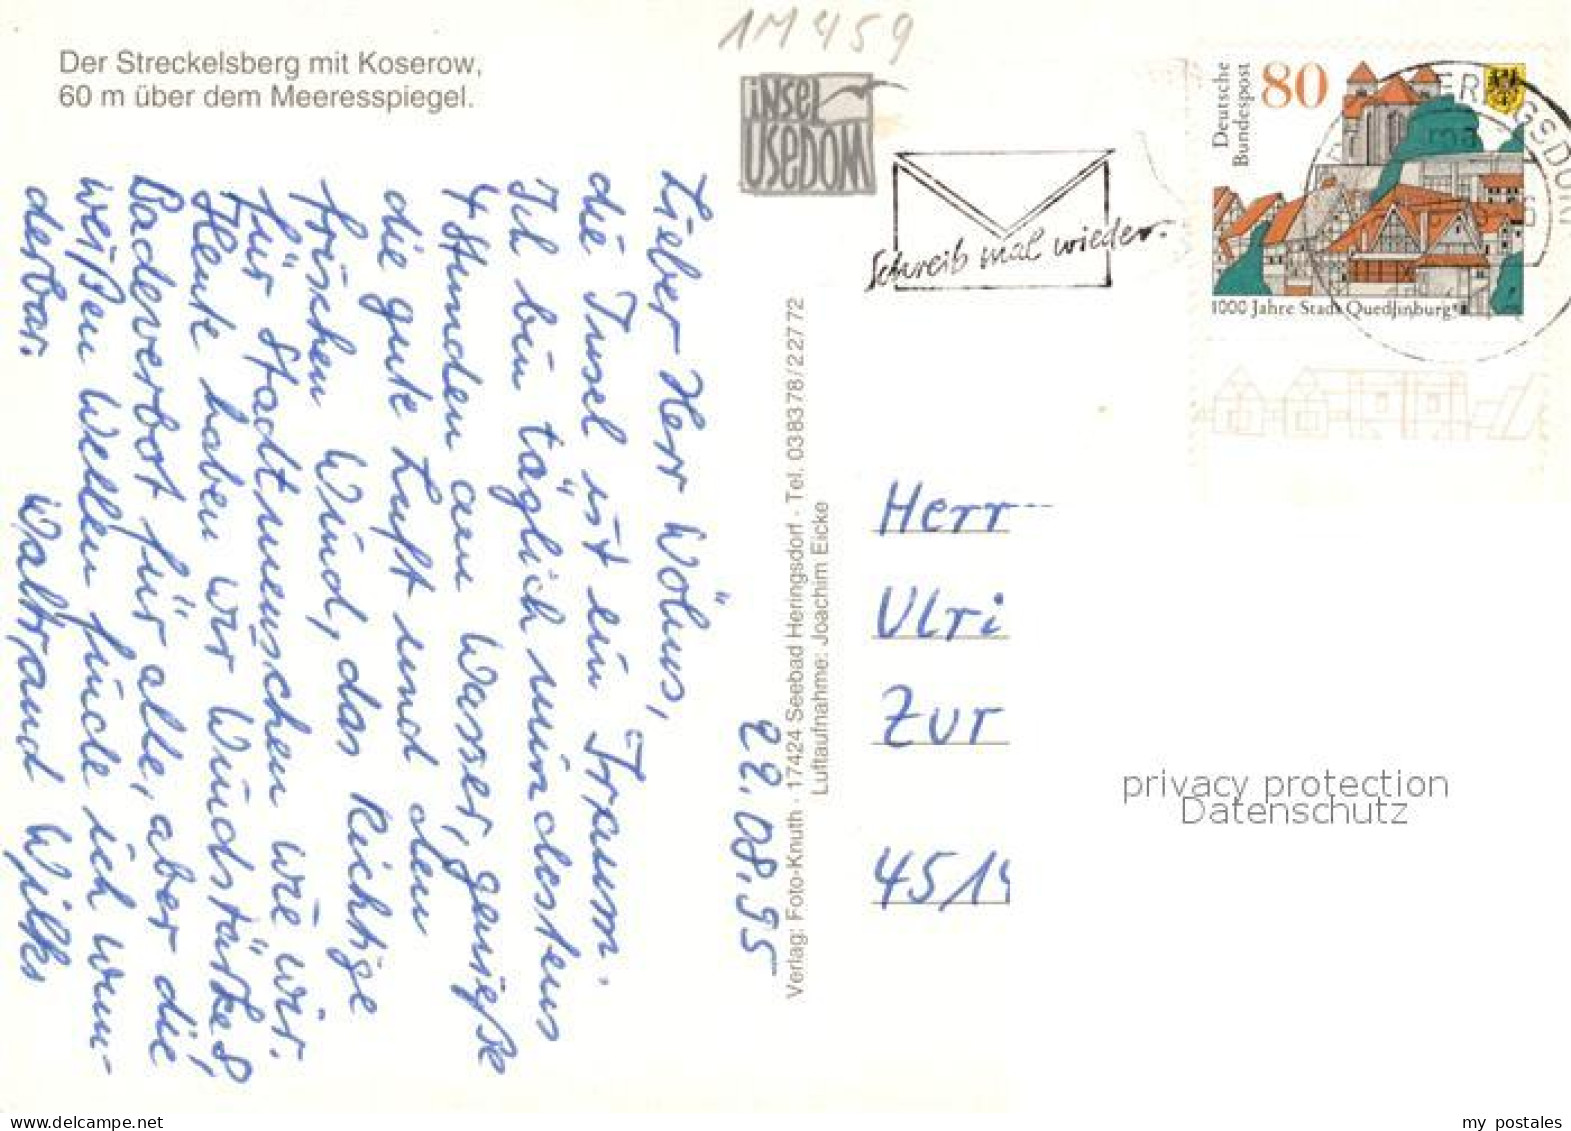 Der Streckelsberg mit Koserow,
60 m über dem Meeresspiegel.
1M459
iNSEL
USEDOM
Schreib mal wieder.
Deutsche
Bundespost
80
1000 Jahre Stadt Quedlinburg
Lieber Herr Wöhns,
die Insel ist ein Traum.
Ich bin täglich mindestens
4 Stunden am Wasser, genieße
die gute Luft und den
frischen Wind, das Richtige
für Stadtmenschen wie wir.
Heute haben wir Windstärke 8,
Badeverbot für alle, aber die
weißen Wellen finde ich wun-
derbar.
Waltraud Wilks
22.08.95
Verlag: Foto-Knuth · 17424 Seebad Heringsdorf · Tel. 038378/22772
Luftaufnahme: Joachim Eicke
Herr
Ulri
Zur
4514
privacy protection
Datenschutz
my_postales